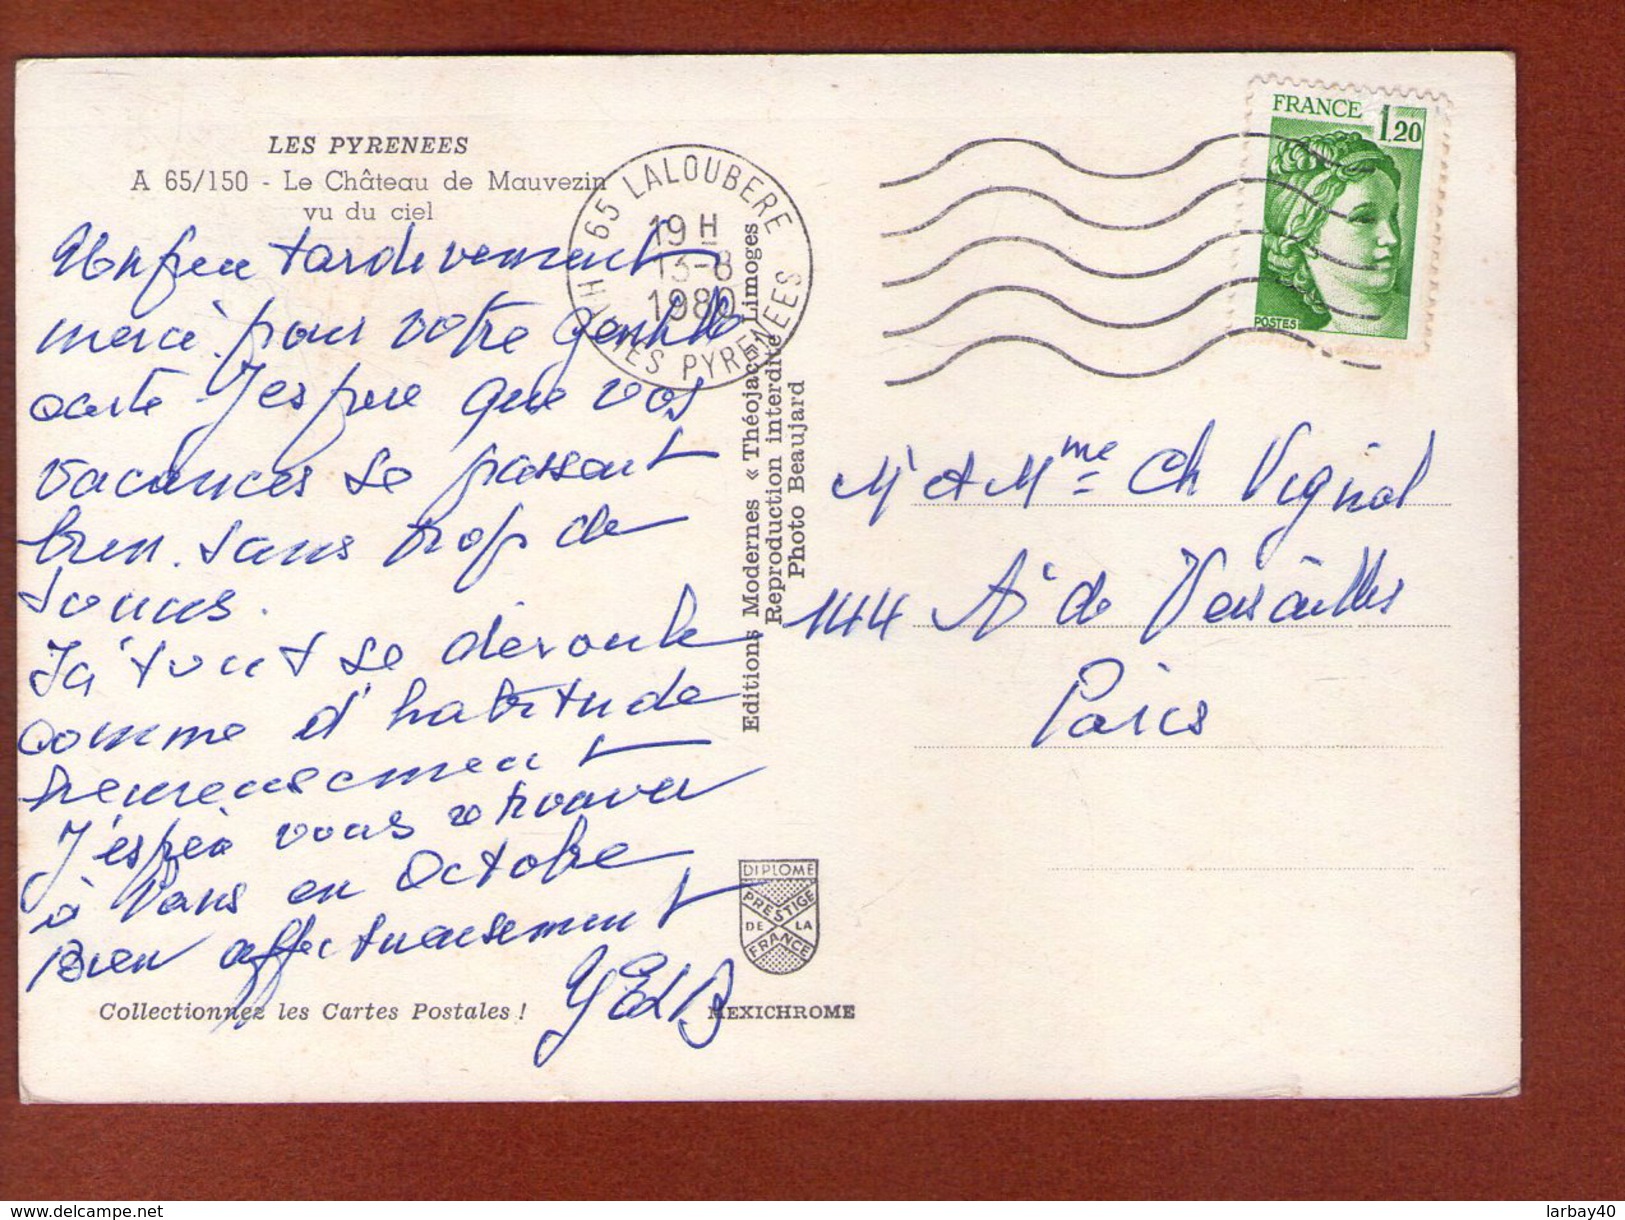 LES PYRENEES
A 65/150 - Le Château de Mauvezin
vu du ciel
Un peu tardivement
merci pour votre gentille
carte J'espère que vos
vacances se passent
bien. sans trop de
soucis.
Ici tout se déroule
comme d'habitude
heureusement
J'espère vous retrouver
à Paris en Octobre
Bien affectueusement
Collectionnez les Cartes Postales !
MEXICHROME
65 LALOUBERE
19 H
13-8
1980
HAUTES PYRENEES
Editions Modernes « Théojac », Limoges
Reproduction interdite
Photo Beaujard
DIPLOME
PRESTIGE
DE LA
FRANCE
FRANCE 1.20
POSTES
Mr et Mme Ch Vignal
144 Av de Versailles
Paris
delcampe.net
larbay40